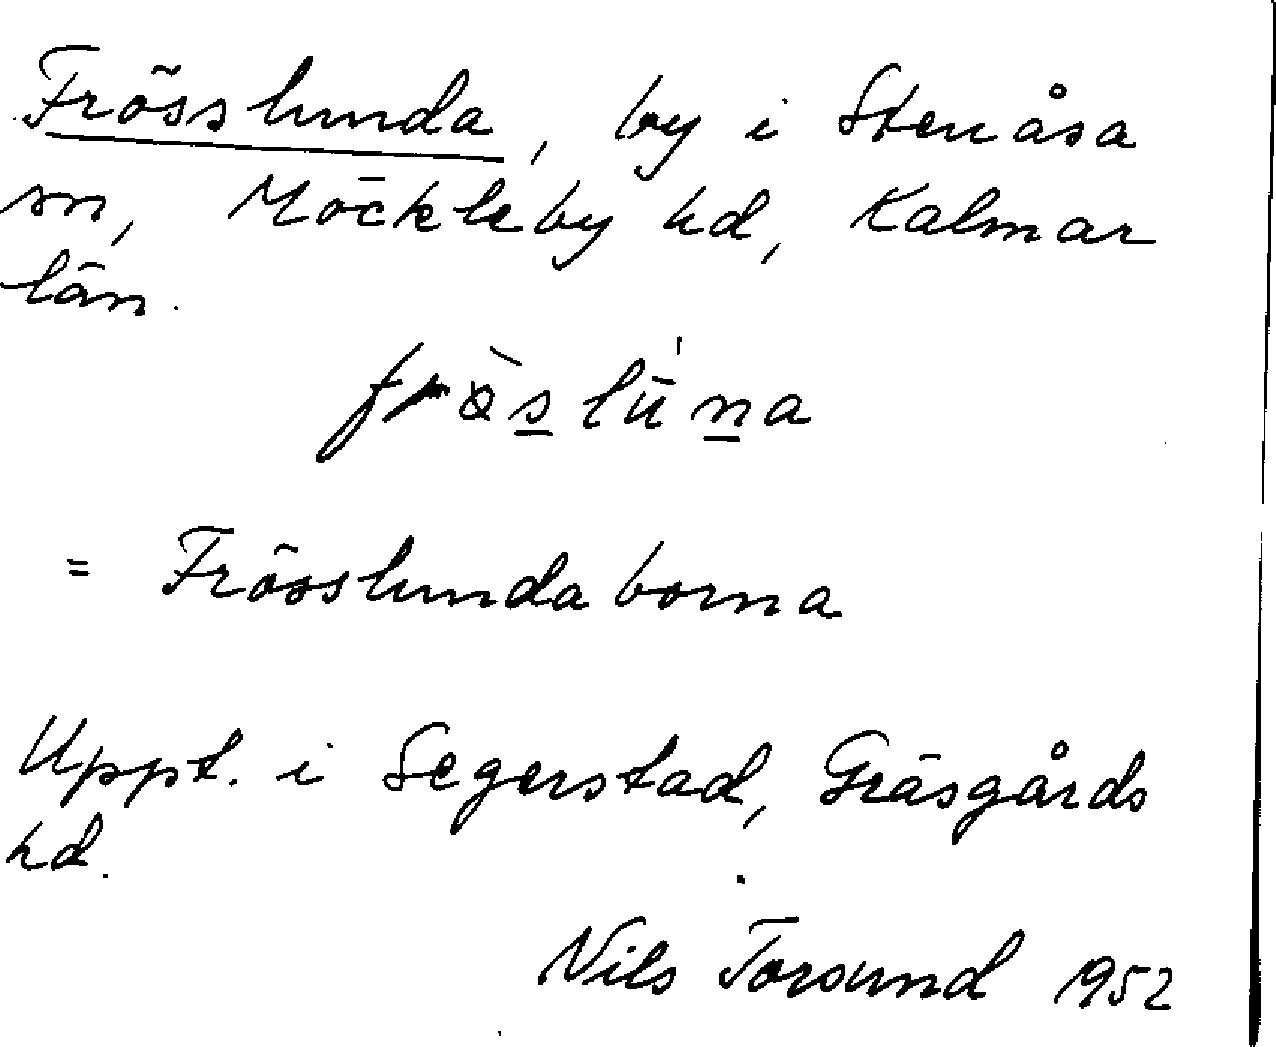 Frösslunda, by i Stenåsa
sn, Möckleby hd, Kalmar
län.
= Frösslundaborna
Uppt. i Segerstad, Gräsgårds
hd.
Nils Torsund 1952